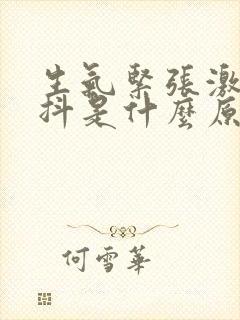 生氣緊張激
抖是什麼原
何雪華